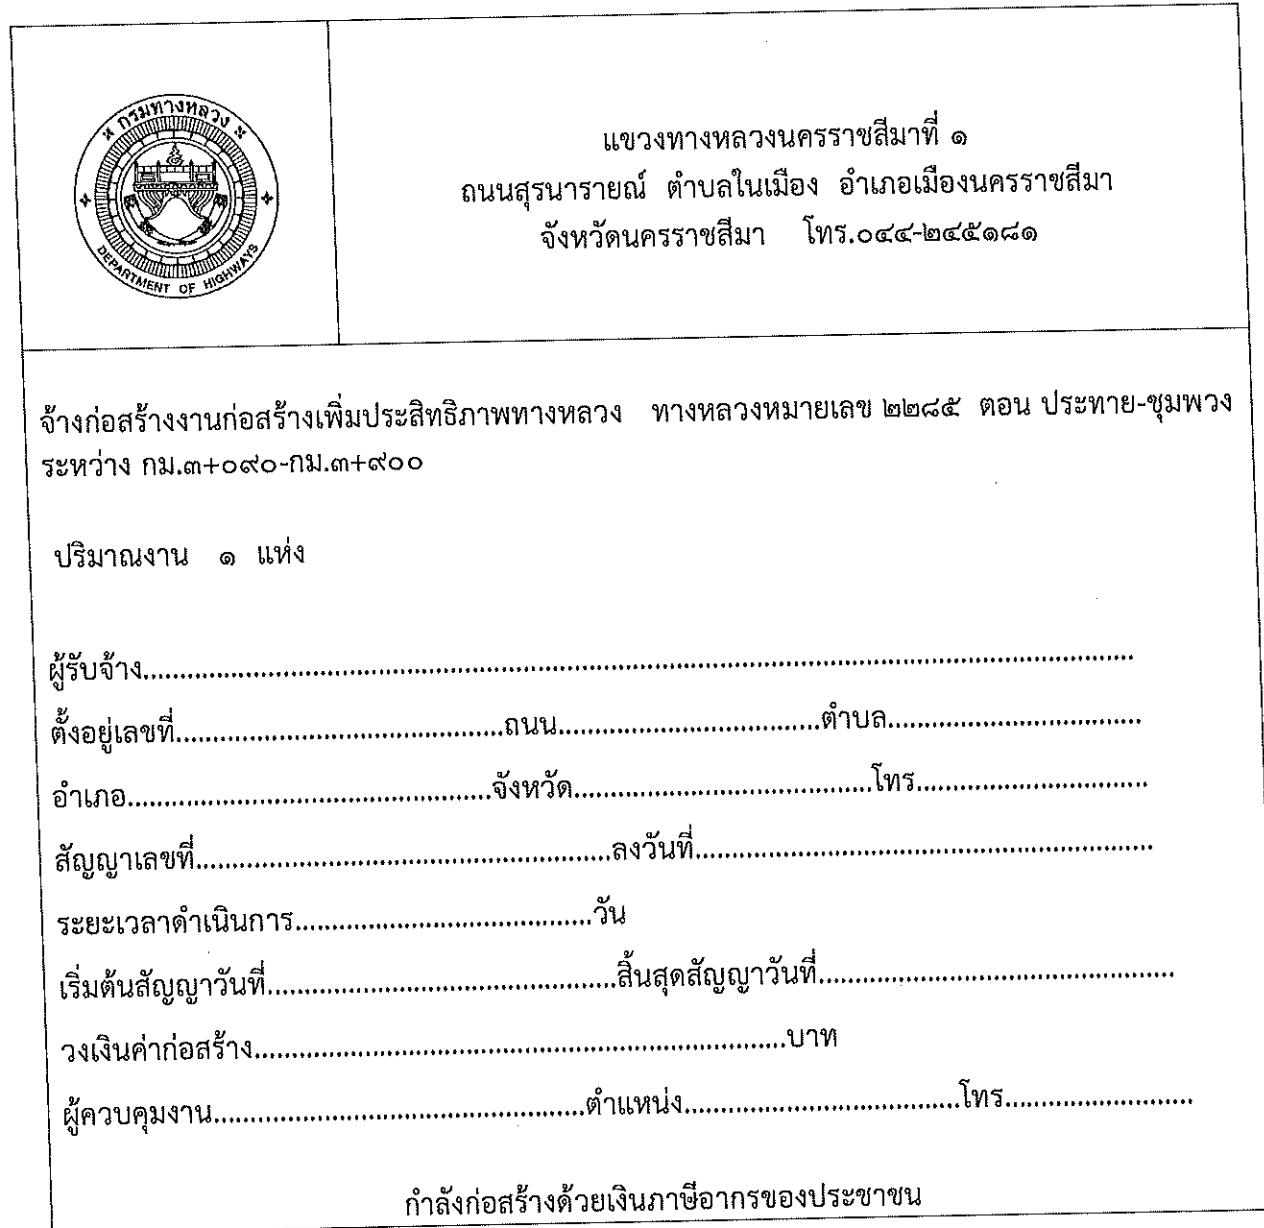 กรมทางหลวง
DEPARTMENT OF HIGHWAYS
แขวงทางหลวงนครราชสีมาที่ ๑
ถนนสุรนารายณ์ ตำบลในเมือง อำเภอเมืองนครราชสีมา
จังหวัดนครราชสีมา โทร.๐๔๔-๒๔๕๑๘๑
จ้างก่อสร้างงานก่อสร้างเพิ่มประสิทธิภาพทางหลวง ทางหลวงหมายเลข ๒๒๘๕ ตอน ประทาย-ชุมพวง
ระหว่าง กม.๓+๐๙๐-กม.๓+๙๐๐
ปริมาณงาน ๑ แห่ง
ผู้รับจ้าง....................................................................................................
ตั้งอยู่เลขที่............................................ถนน...................................ตำบล..................................
อำเภอ.................................................จังหวัด........................................โทร...............................
สัญญาเลขที่........................................................ลงวันที่..............................................................
ระยะเวลาดำเนินการ........................................วัน
เริ่มต้นสัญญาวันที่...............................................สิ้นสุดสัญญาวันที่................................................
วงเงินค่าก่อสร้าง.......................................................................บาท
ผู้ควบคุมงาน..................................................ตำแหน่ง.....................................โทร.........................
กำลังก่อสร้างด้วยเงินภาษีอากรของประชาชน